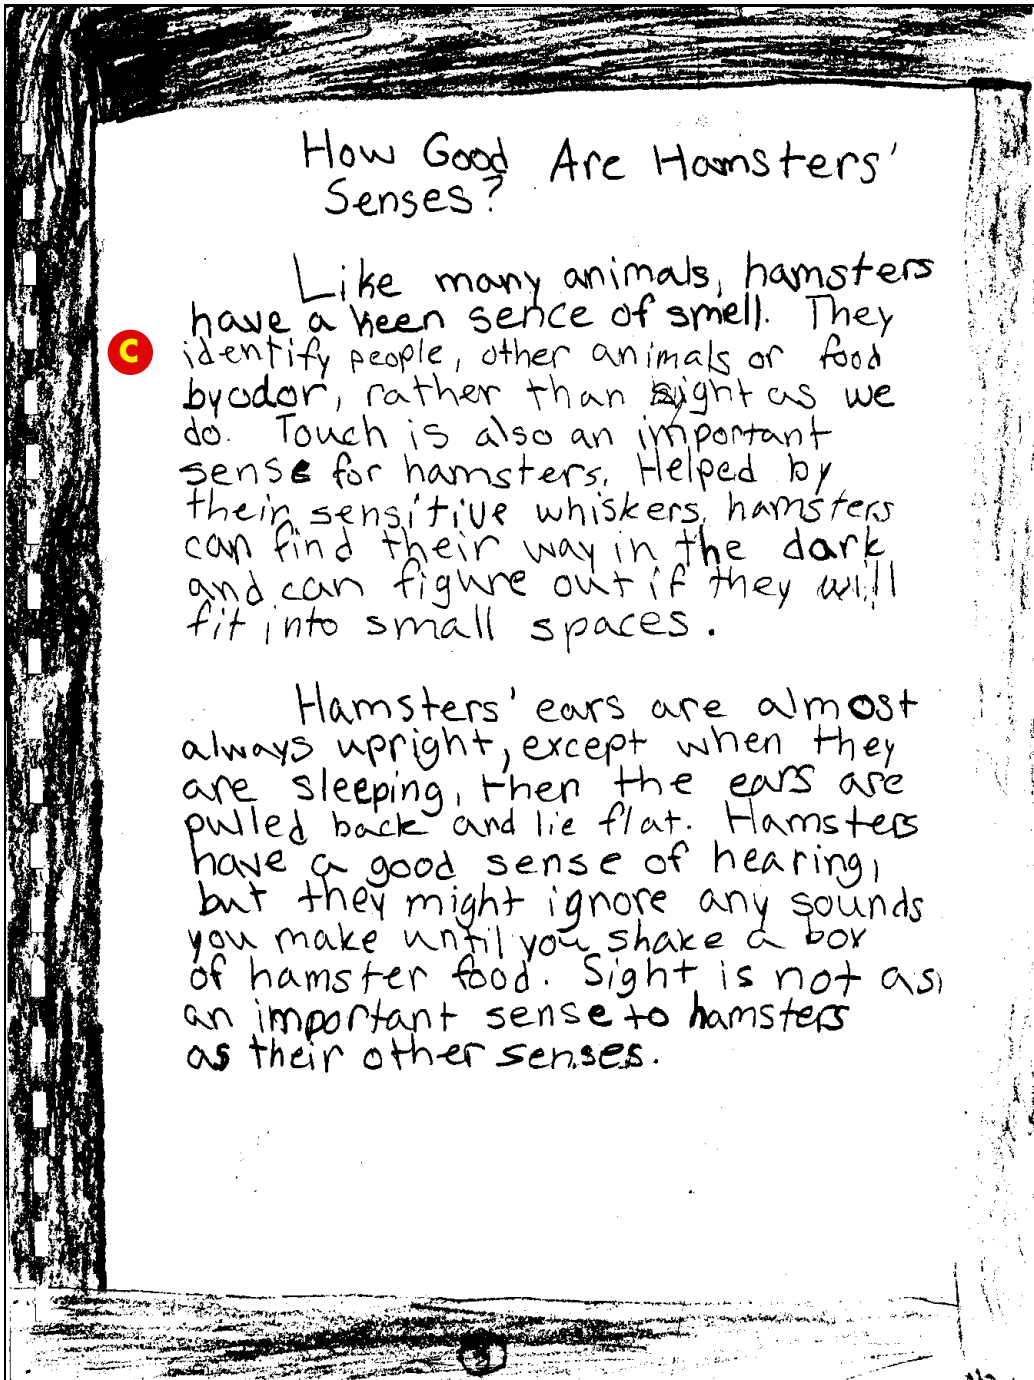 How Good Are Hamsters'
Senses?
Like many animals, hamsters
have a keen sence of smell. They
C
identify people, other animals or food
by odor, rather than sight as we
do. Touch is also an important
sense for hamsters. Helped by
their sensitive whiskers, hamsters
can find their way in the dark
and can figure out if they will
fit into small spaces.
Hamsters' ears are almost
always upright, except when they
are sleeping, then the ears are
pulled back and lie flat. Hamsters
have a good sense of hearing,
but they might ignore any sounds
you make until you shake a box
of hamster food. Sight is not as
an important sense to hamsters
as their other senses.